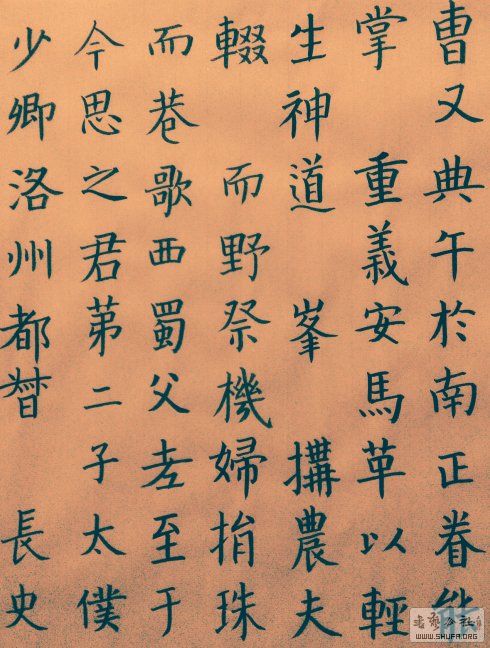 曹又典午於南正眷
掌重義安馬革以輕
生神道峯搆農夫
輟而野祭機婦捐珠
而巷歌西蜀父老至于
今思之君苐二子太僕
少卿洛州都督長史
WWW.SHUFA.ORG